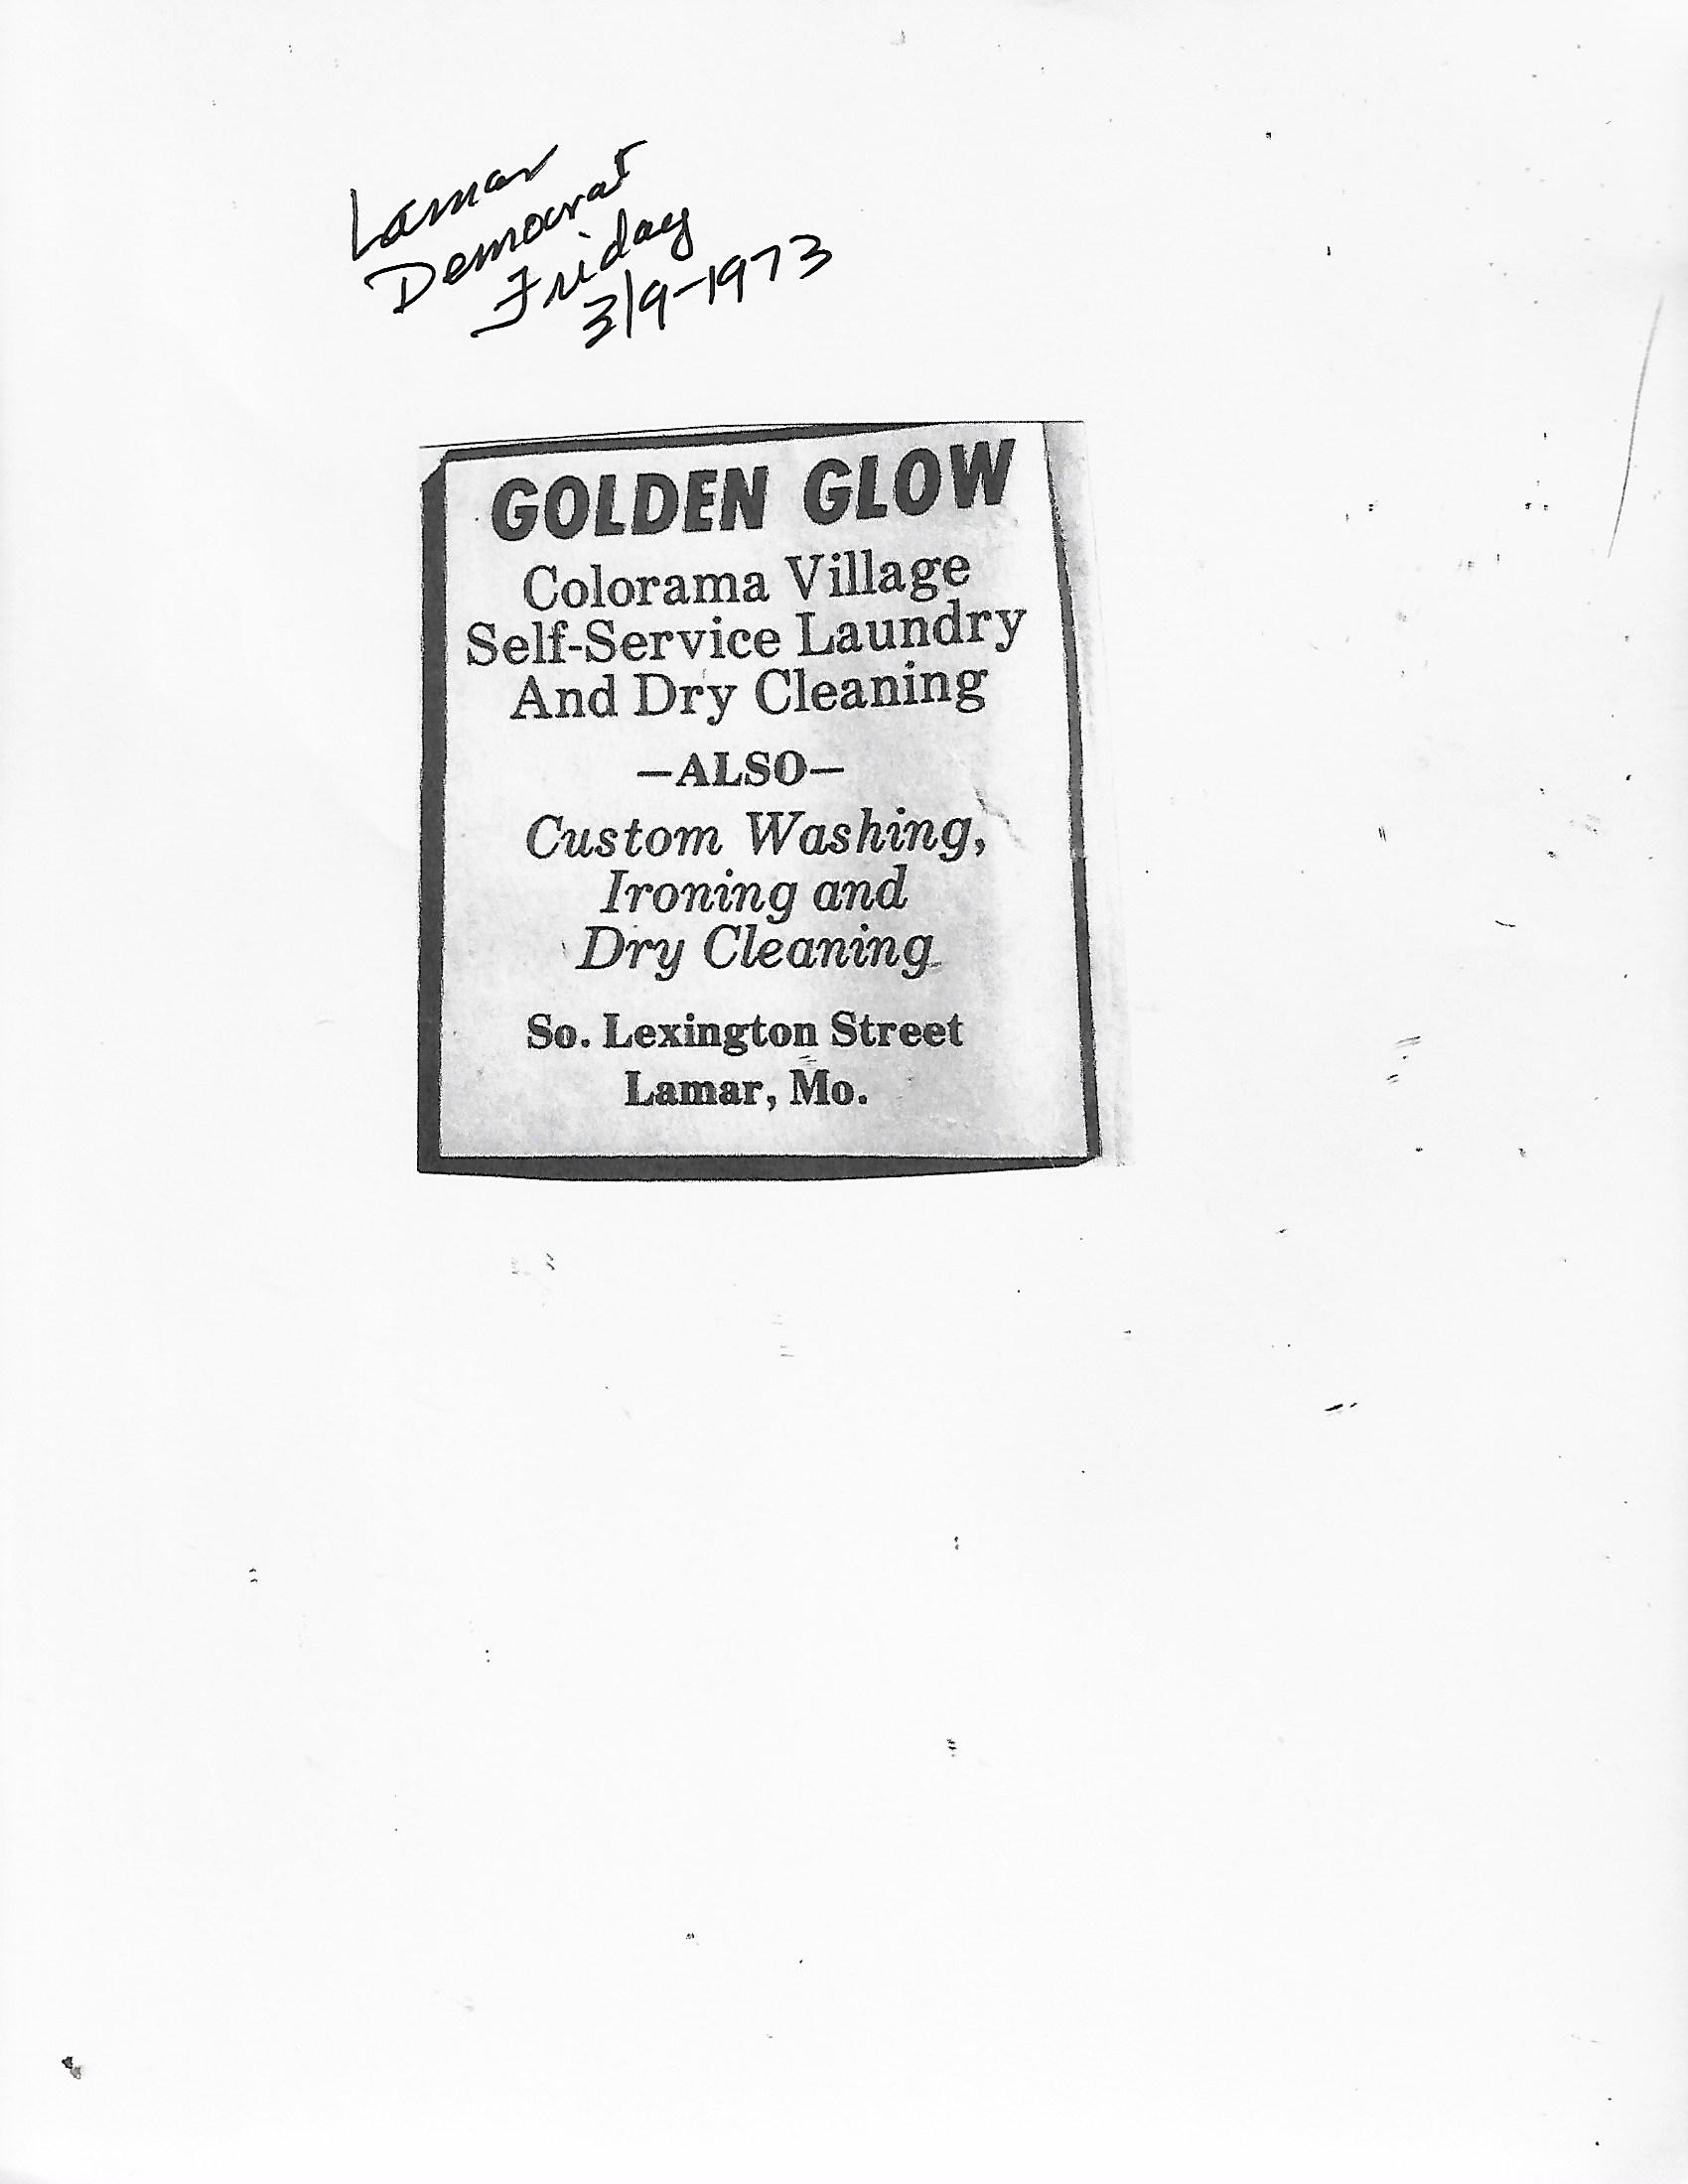 Lamar
Democrat
Friday
3/9-1973
GOLDEN GLOW
Colorama Village
Self-Service Laundry
And Dry Cleaning
—ALSO—
Custom Washing,
Ironing and
Dry Cleaning
So. Lexington Street
Lamar, Mo.